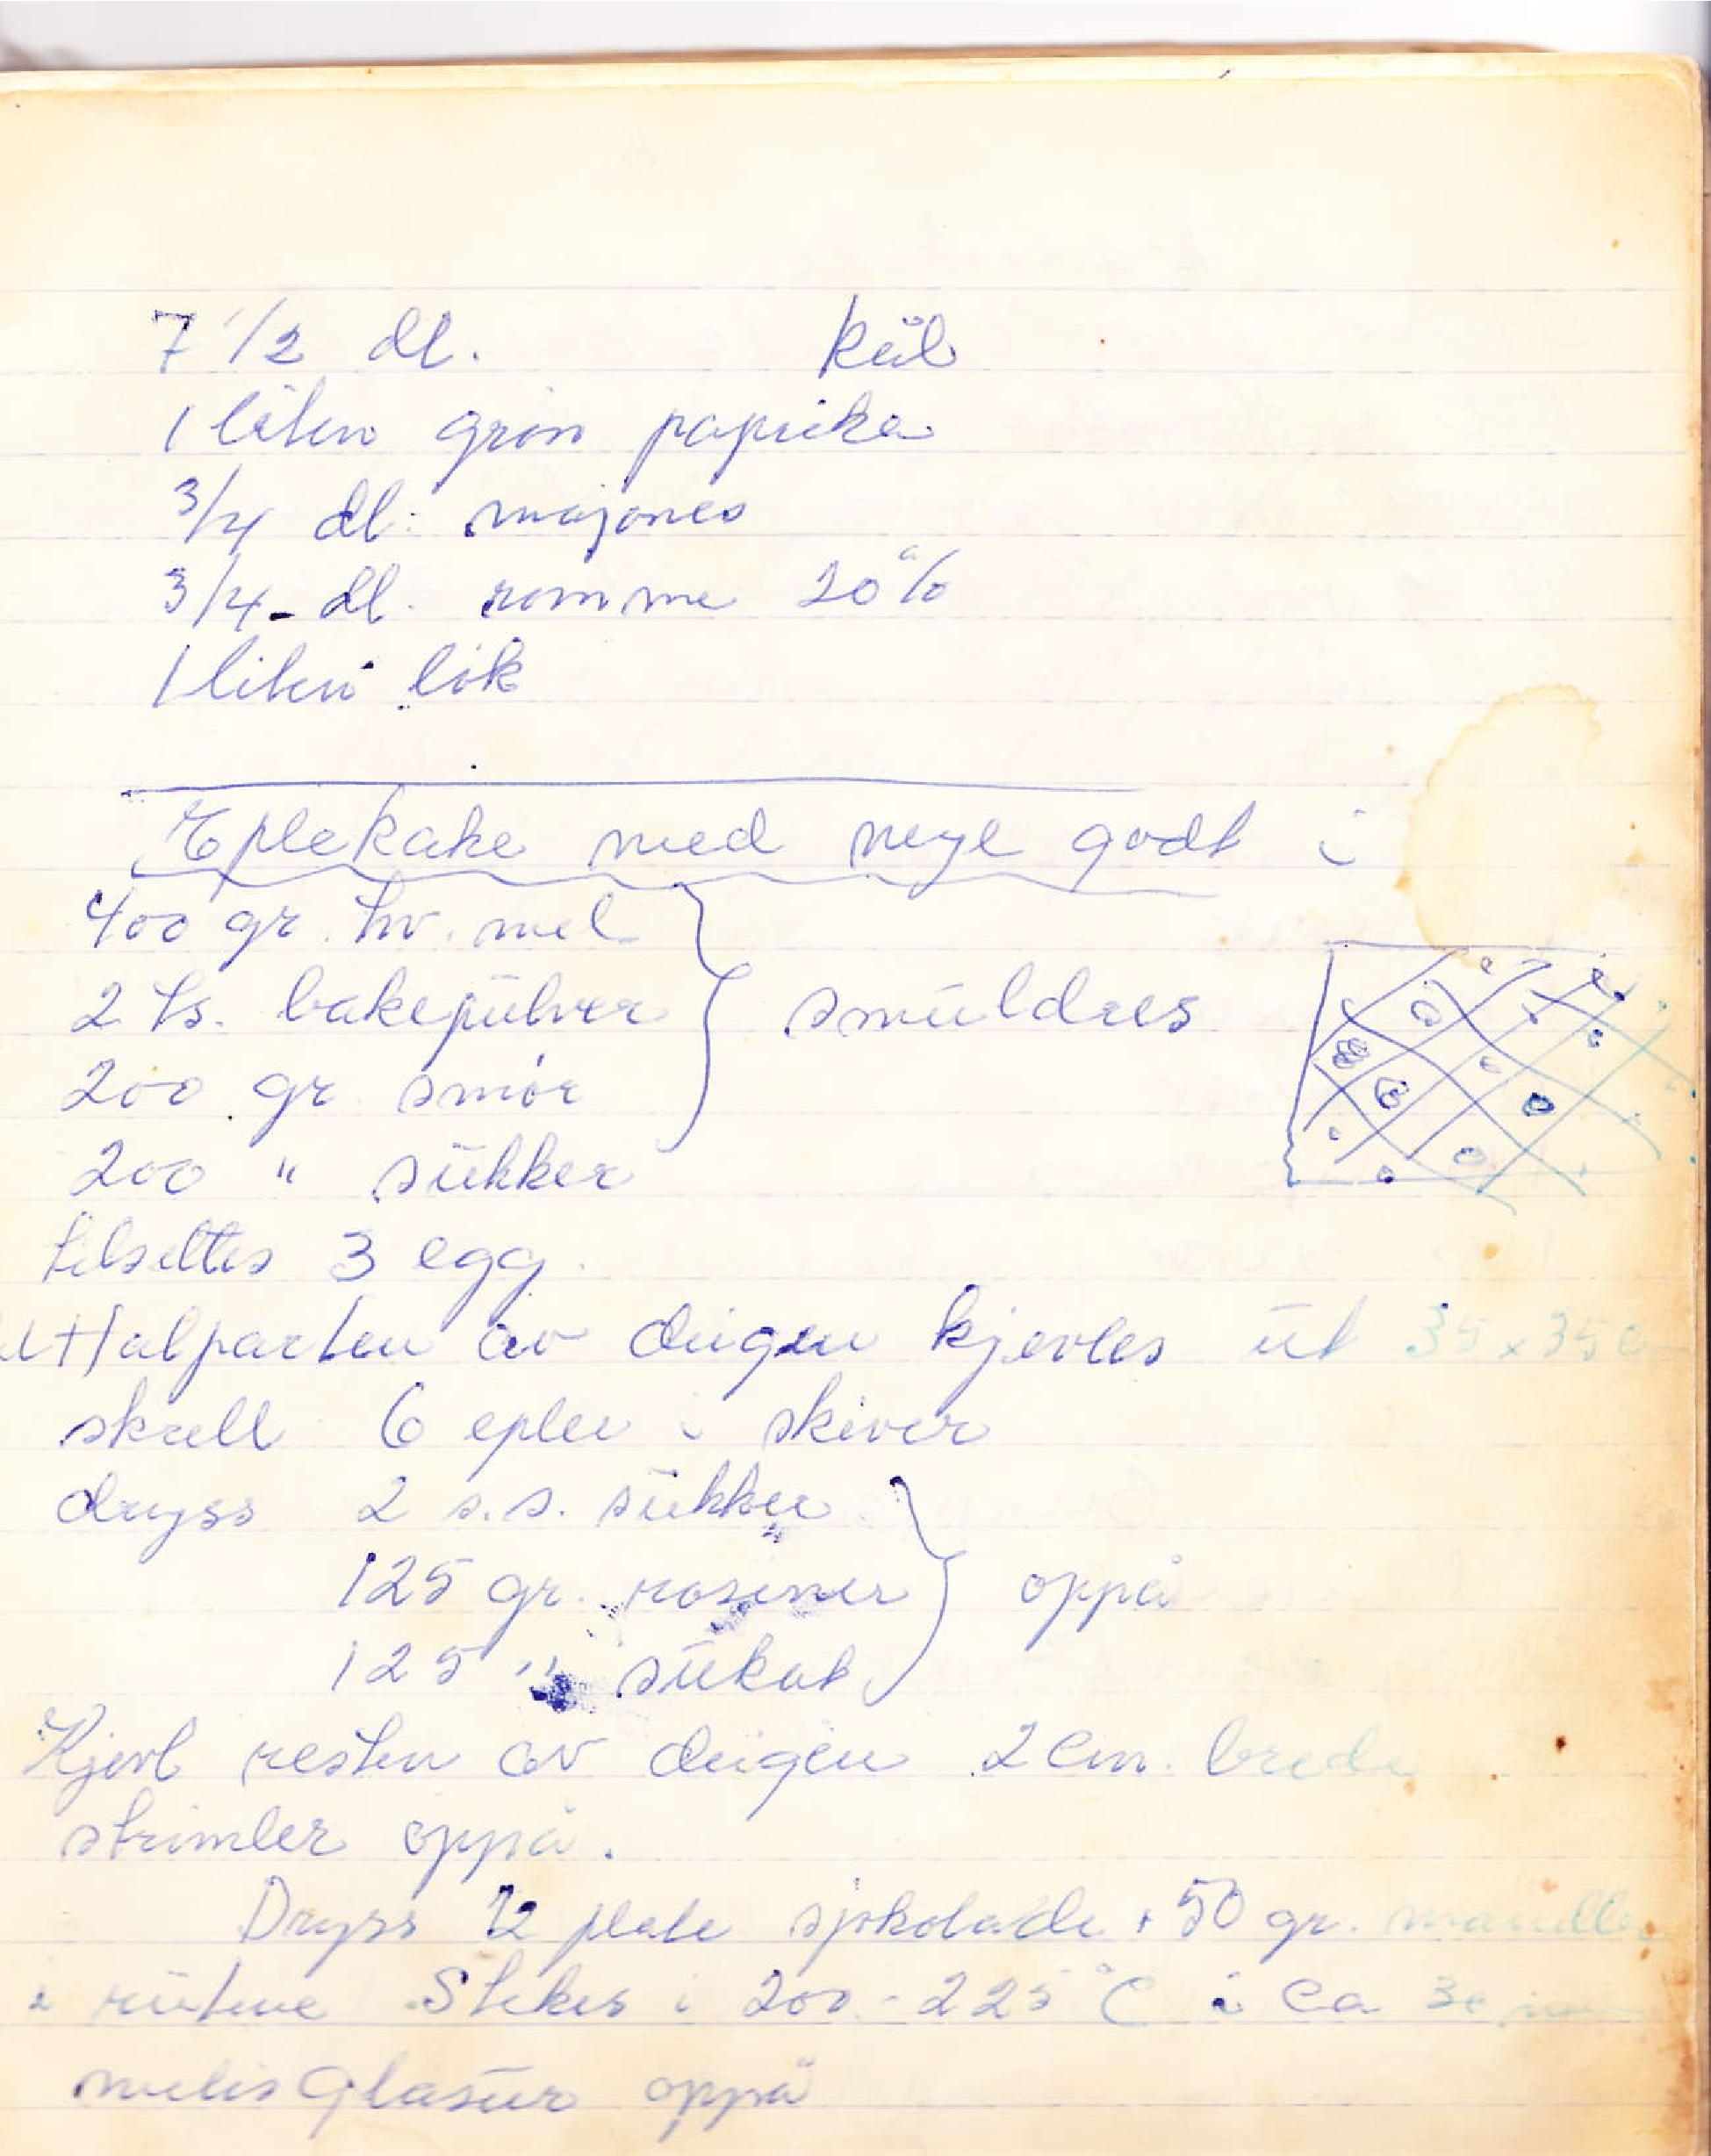 7 1/2 dl. kål
1 liten grøn paprika
3/4 dl. majones
3/4 - dl. romme 20%
1 liten løk
Eplekake med mye godt i
400 gr. hv. mel
2 ts. bakepulver smuldres
200 gr smør
200 " sukker
tilsettes 3 egg.
Halparten av deigen kjevles ut 35 x 35
skrell 6 epler i skiver
dryss 2 s.s. sukker
125 gr. rosiner oppå
125 " sukat
Kjevl resten av deigen 2 cm. brede
strimler oppå.
Dryss 1/2 plate sjokolade + 50 gr. mandler
i rutene Stekes i 200 - 225°C i ca 30 min
melis Glasur oppå